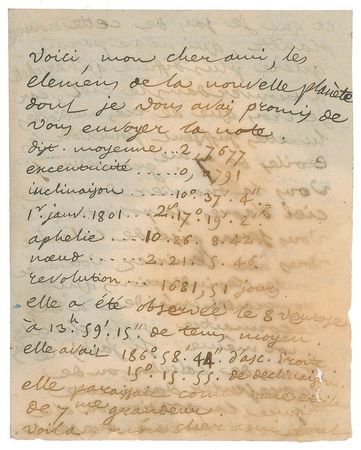 Voici, mon cher ami, les
elemens de la nouvelle planete
dont je vous avai promis de
vous envoyer la note.
dist. moyenne . . 2,7677
excentricité . . . . 0,0791
inclinaison . . . . 10°. 37'. 4"
1er janv. 1801 . . 2s. 17°. 19'. 2"
aphelie . . . . 10. 26. 8. 42.
nœud . . . . 2. 21. 5. 46.
revolution . . . . 1681,51 jours.
elle a été observée le 8 ventose
à 13h. 59'. 15" de tems moyen.
elle avait 186°. 58'. 44" d'asc. droite
15°. 15. 55. de declinaison.
elle paraissait comme une étoile
de 7me grandeur.
voila mon cher ami tout